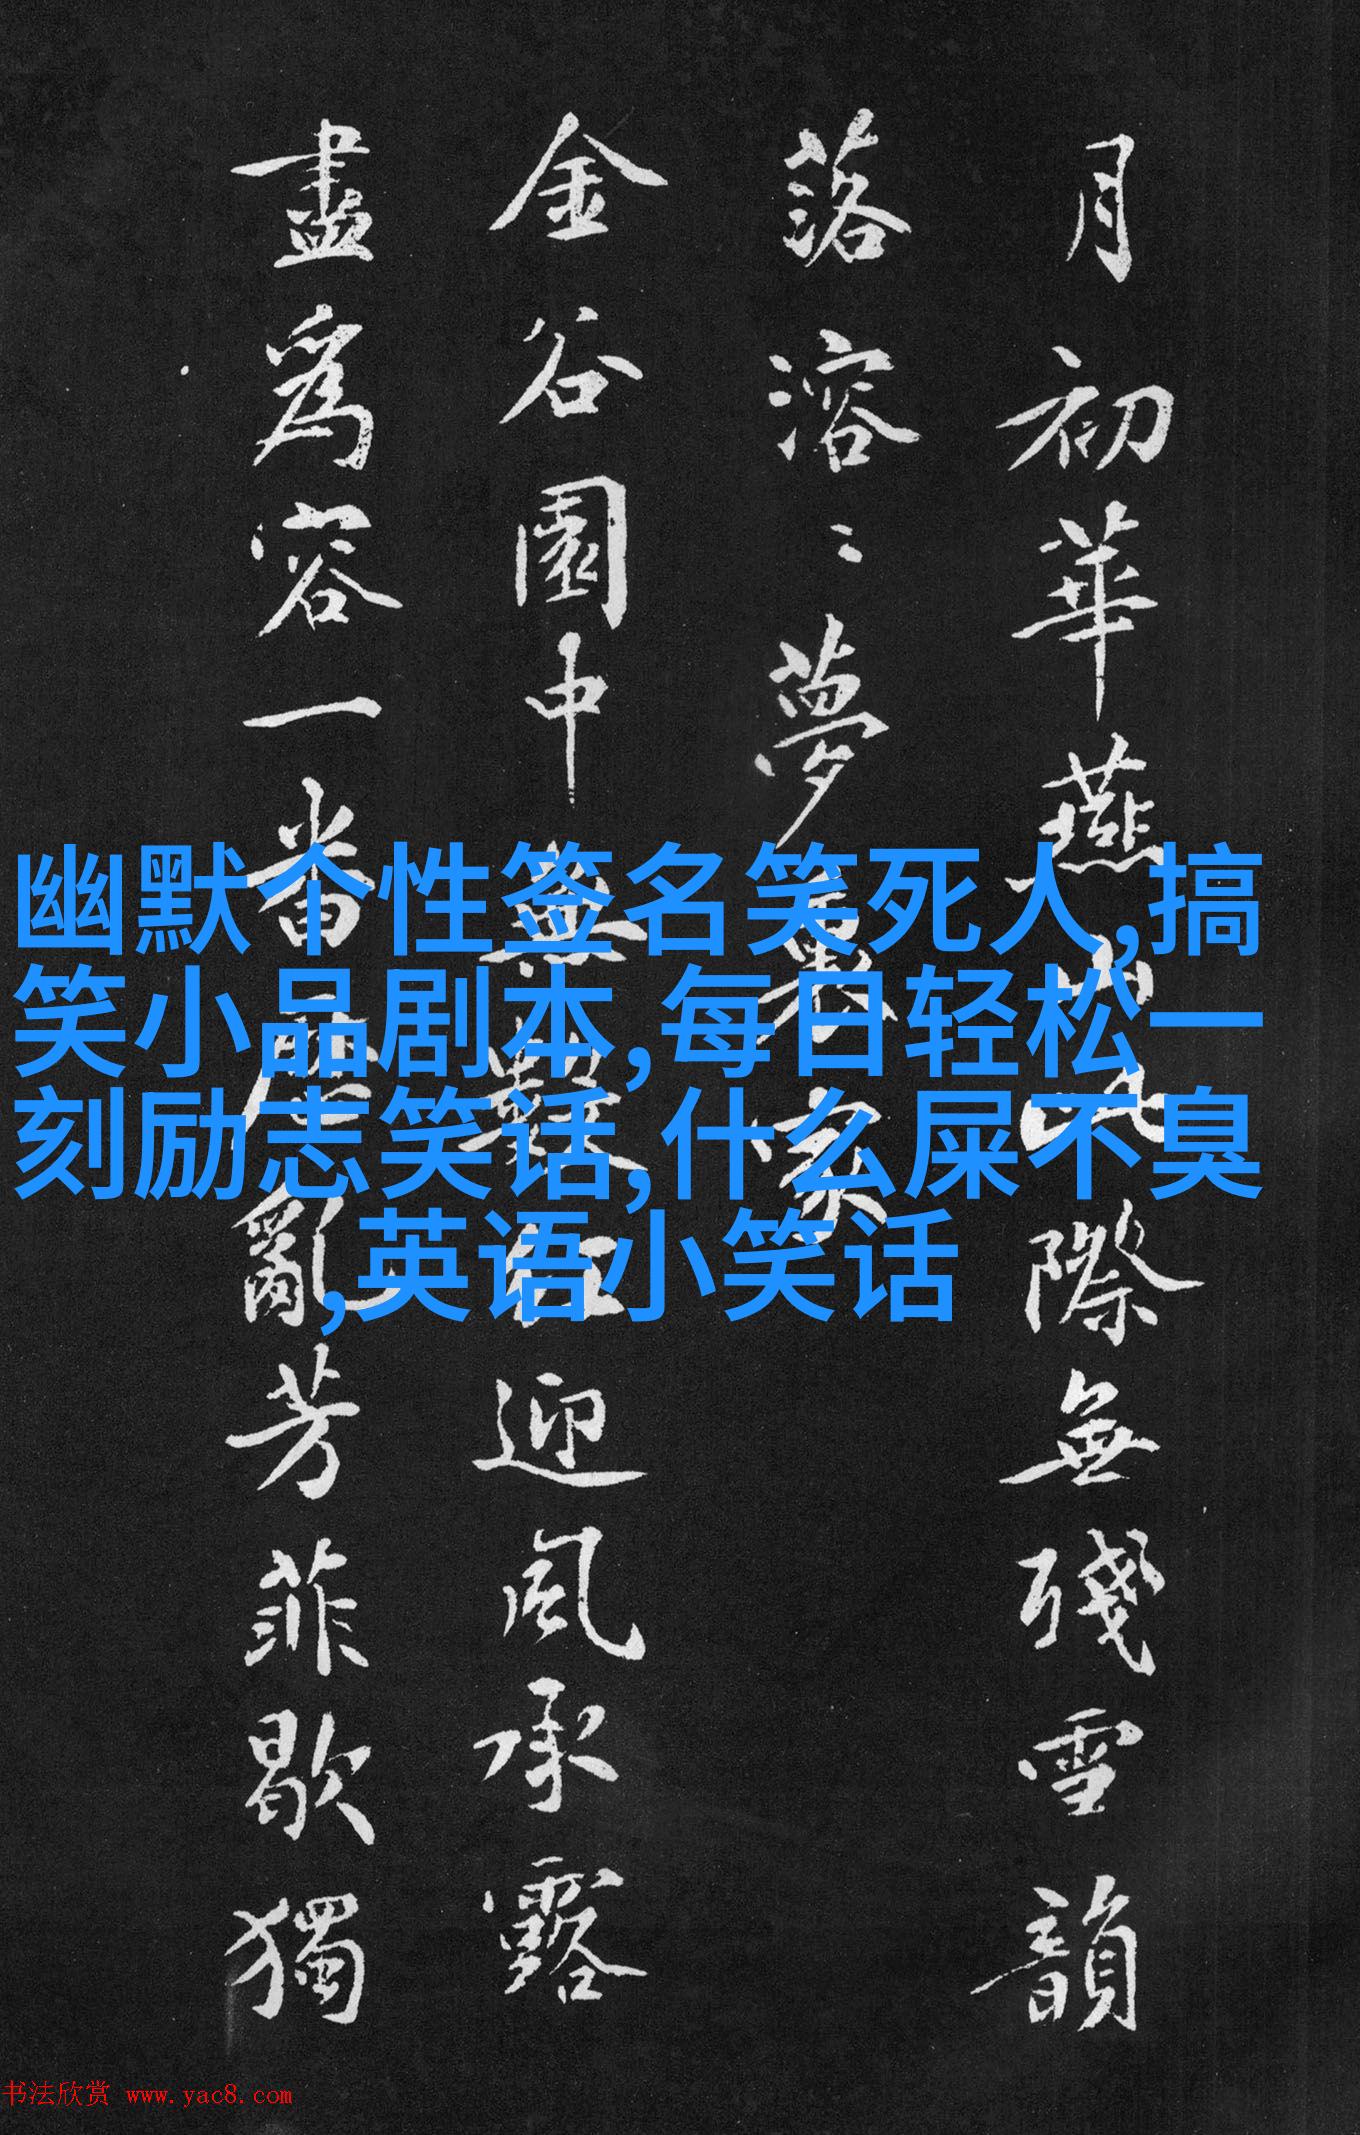 月初華燕山此際無殘雪韻
落溶〻夢裏家
金谷園中無數紅迎風承露
盡為容一番塵亂芳菲歇獨
幽默个性签名笑死人,搞
笑小品剧本,每日轻松一
刻励志笑话,什么屎不臭
,英语小笑话
书法欣赏 www.yac8.com